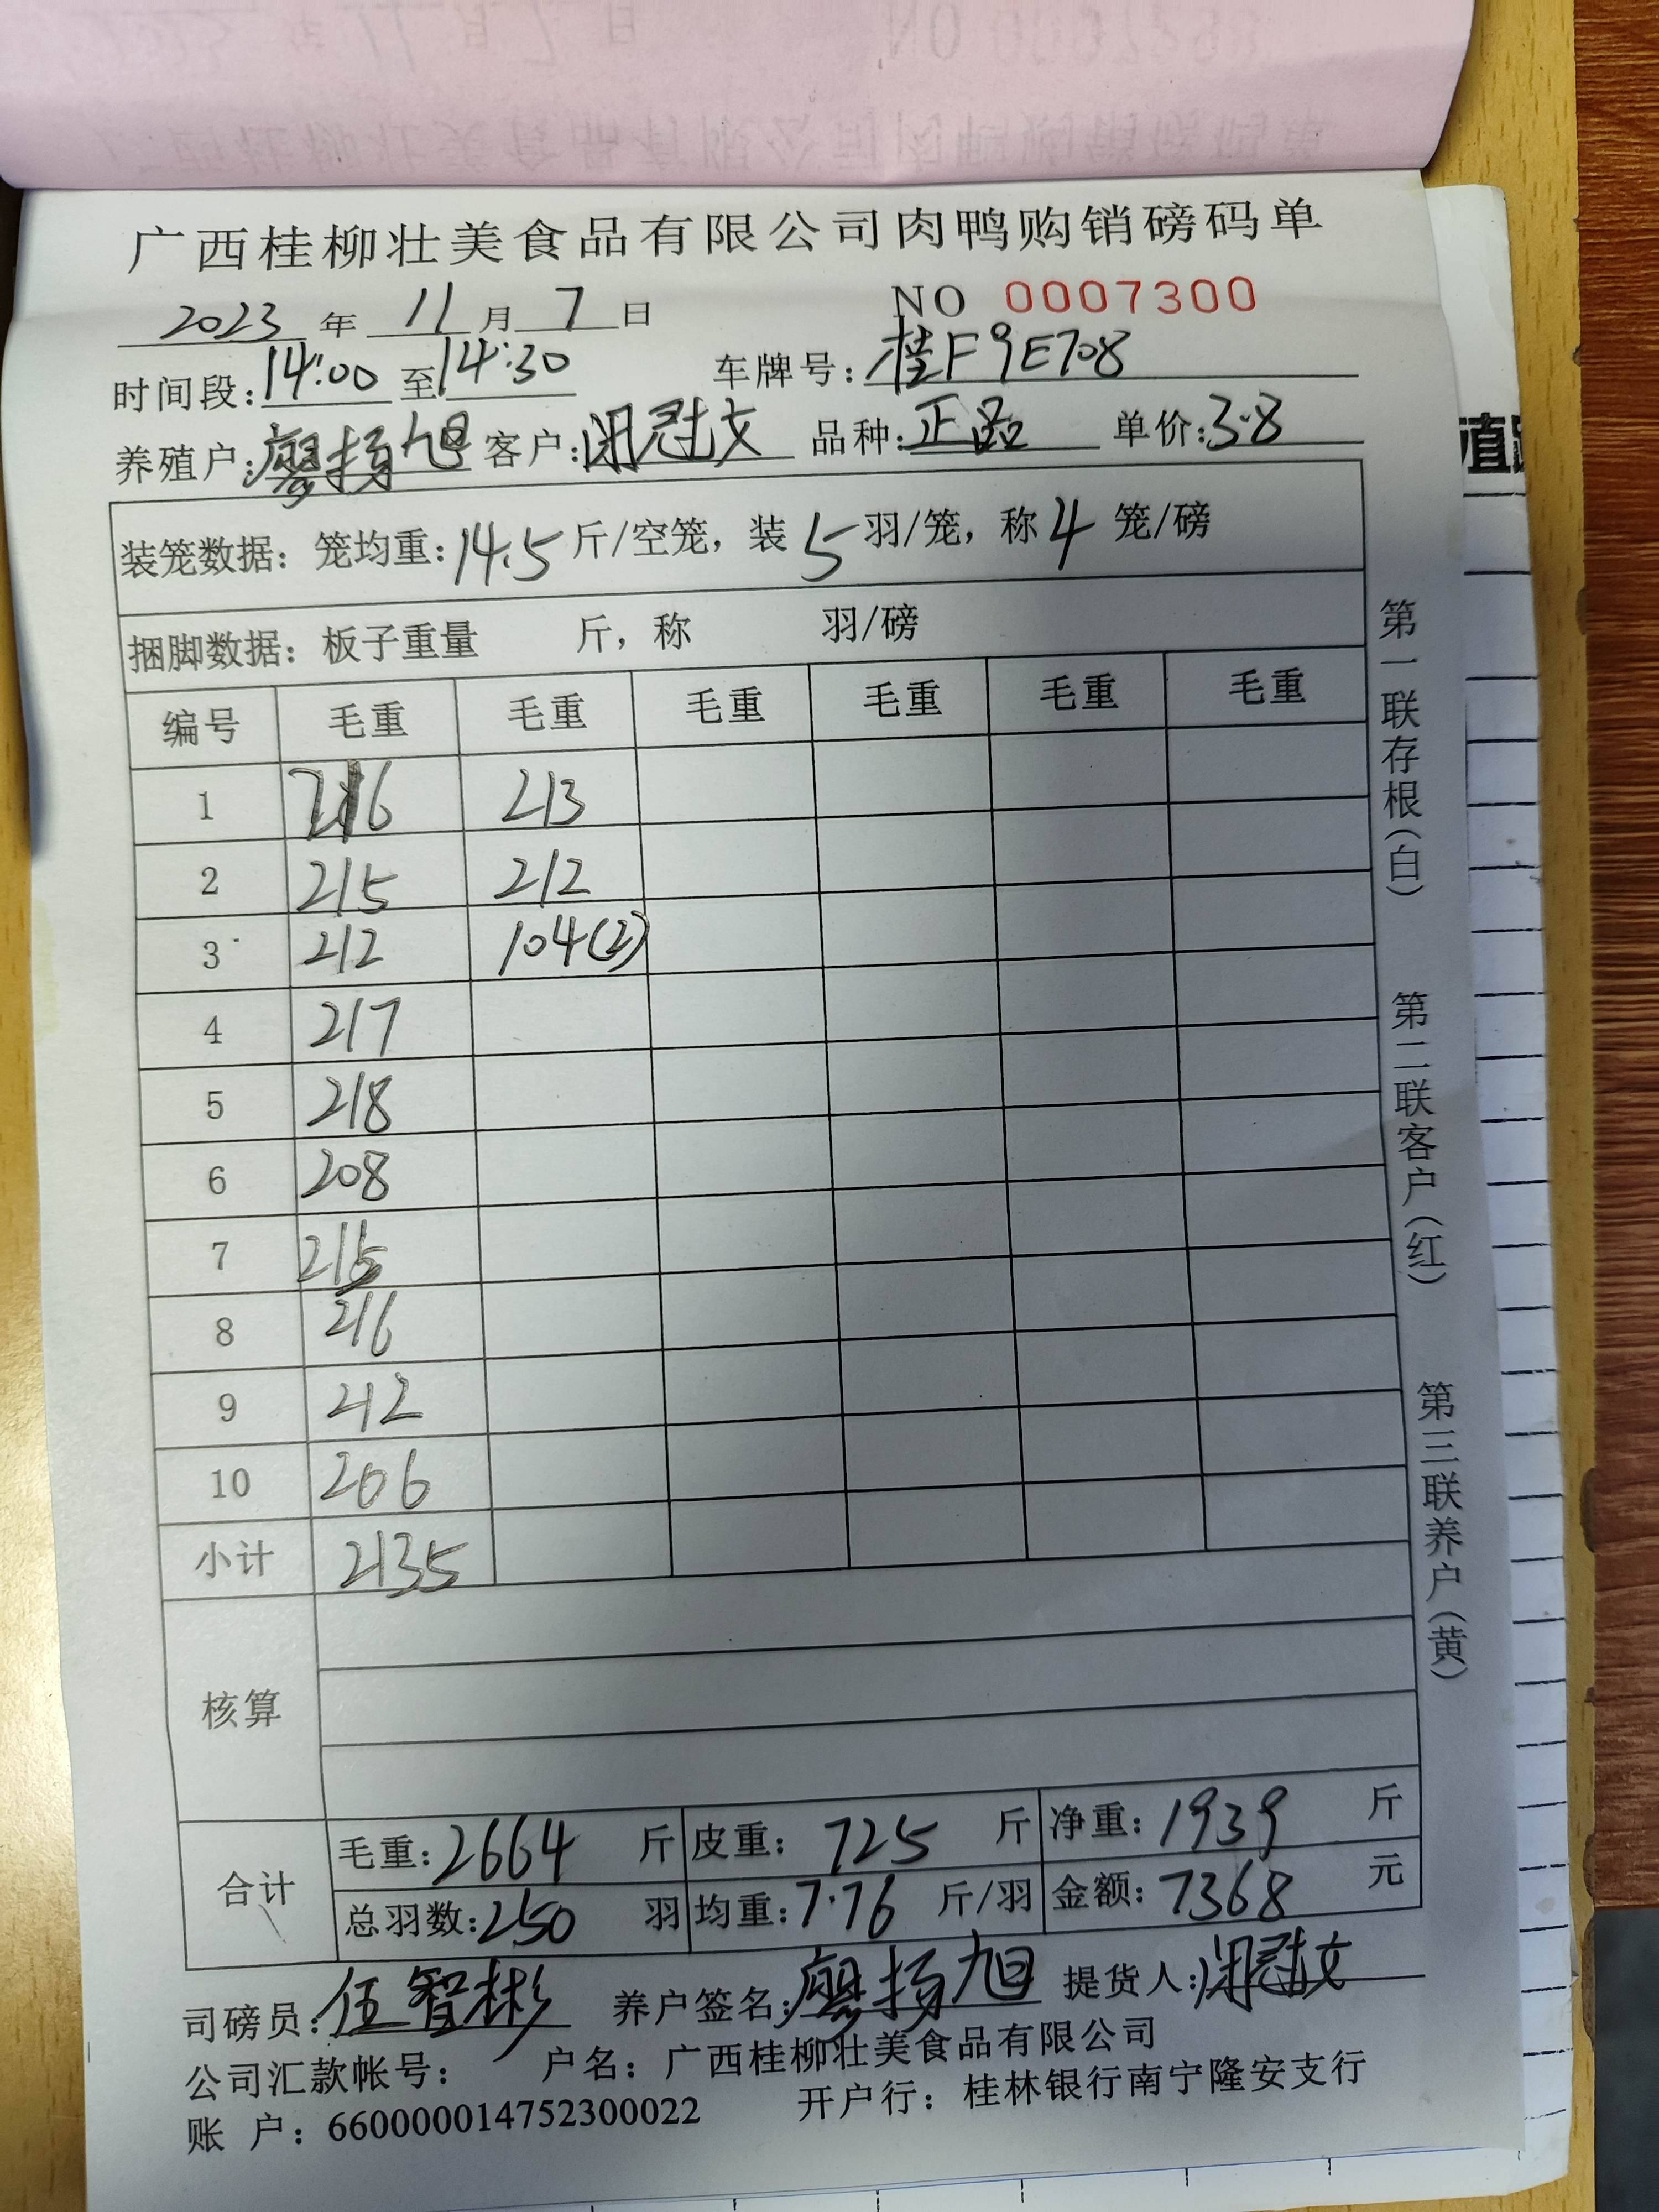 广西桂柳壮美食品有限公司肉鸭购销磅码单
2023 年 11 月 7 日 NO 0007300
时间段: 14:00 至 14:30 车牌号: 桂F9E708
养殖户: 廖扬旭 客户: 闭冠文 品种: 正品 单价: 3.8
装笼数据: 笼均重: 14.5 斤/空笼, 装 5 羽/笼, 称 4 笼/磅
捆脚数据: 板子重量 斤, 称 羽/磅
编号 毛重 毛重 毛重 毛重 毛重 毛重
1 216 213
2 215 212
3 212 104(2)
4 217
5 218
6 208
7 215
8 216
9 212
10 206
小计 2135
核算
合计 毛重: 2664 斤 皮重: 725 斤 净重: 1939 斤
总羽数: 250 羽 均重: 7.76 斤/羽 金额: 7368 元
司磅员: 伍智彬 养户签名: 廖扬旭 提货人: 闭冠文
公司汇款帐号: 户名: 广西桂柳壮美食品有限公司
账 户: 660000014752300022 开户行: 桂林银行南宁隆安支行
第一联存根(白)
第二联客户(红)
第三联养户(黄)